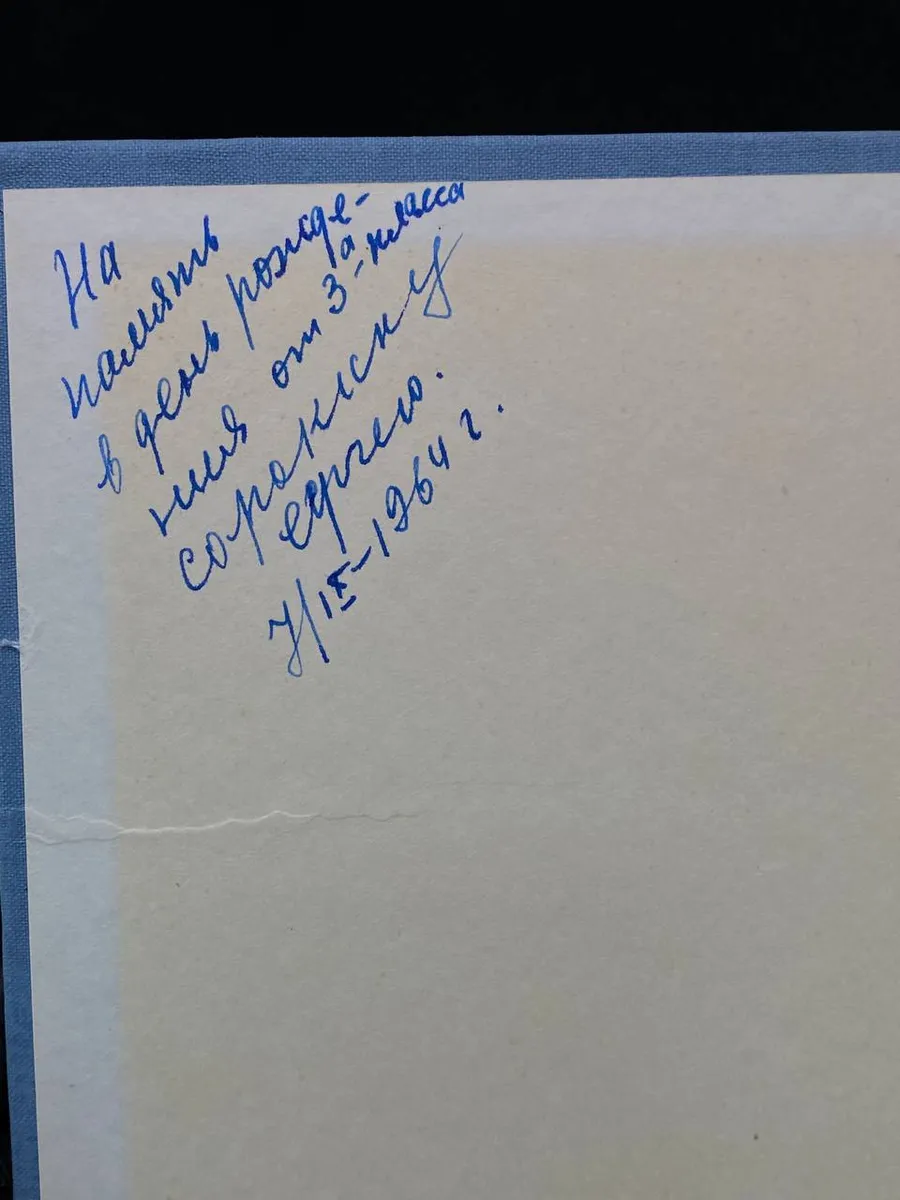 На
память
в день рожде-
ния от 3а-класса
сорокину
сергею.
7/IX-1964 г.